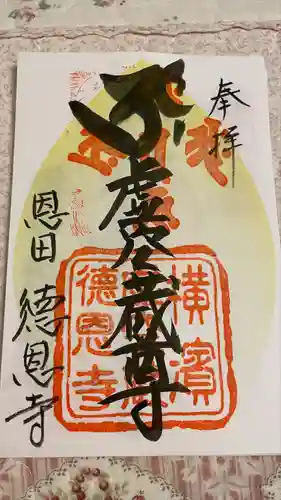 奉拝
虚空蔵尊
恩田
徳恩寺
横濱
徳恩寺